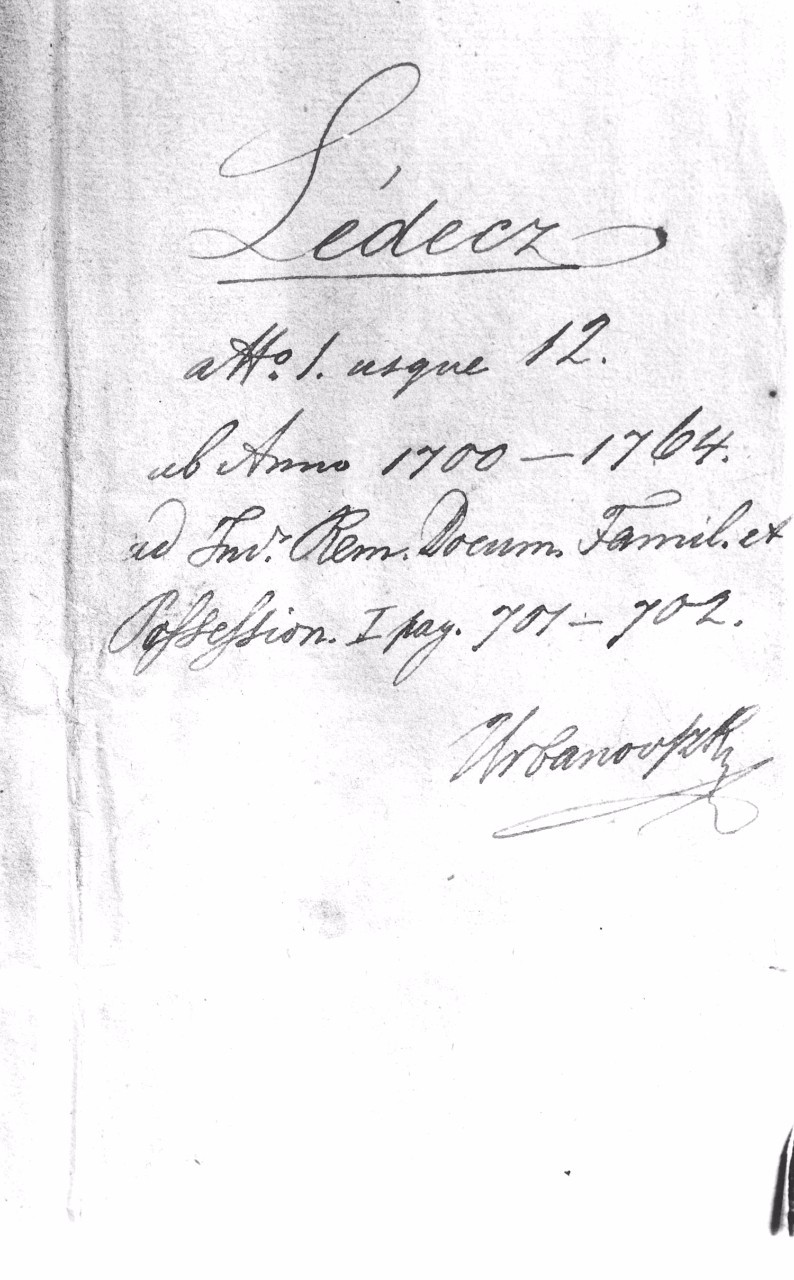 Lédecz
a No. 1. usque 12.
ab Anno 1700 — 1764.
ad Ind. Rem. Docum. Famil. et
Possession. I pag. 701 — 702.
Urbanovszky